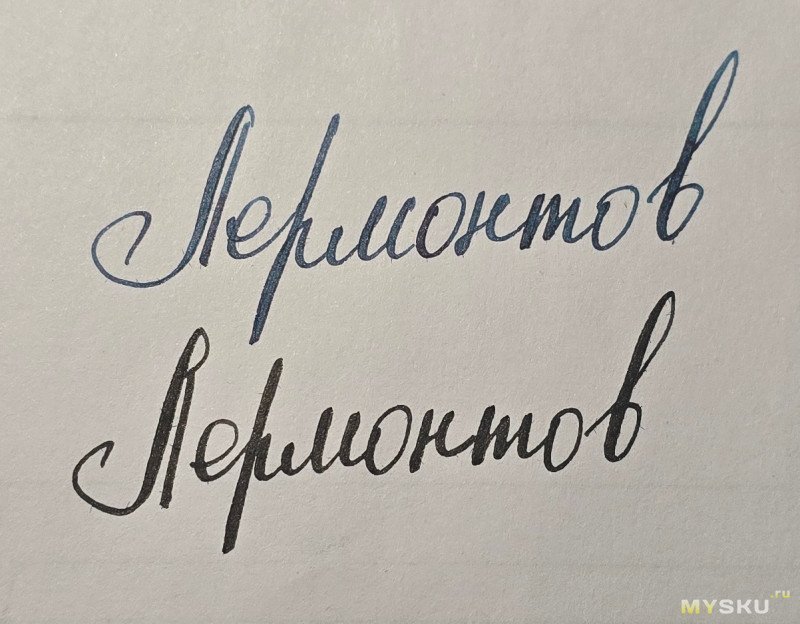 Лермонтов
Лермонтов
MYSKU.ru